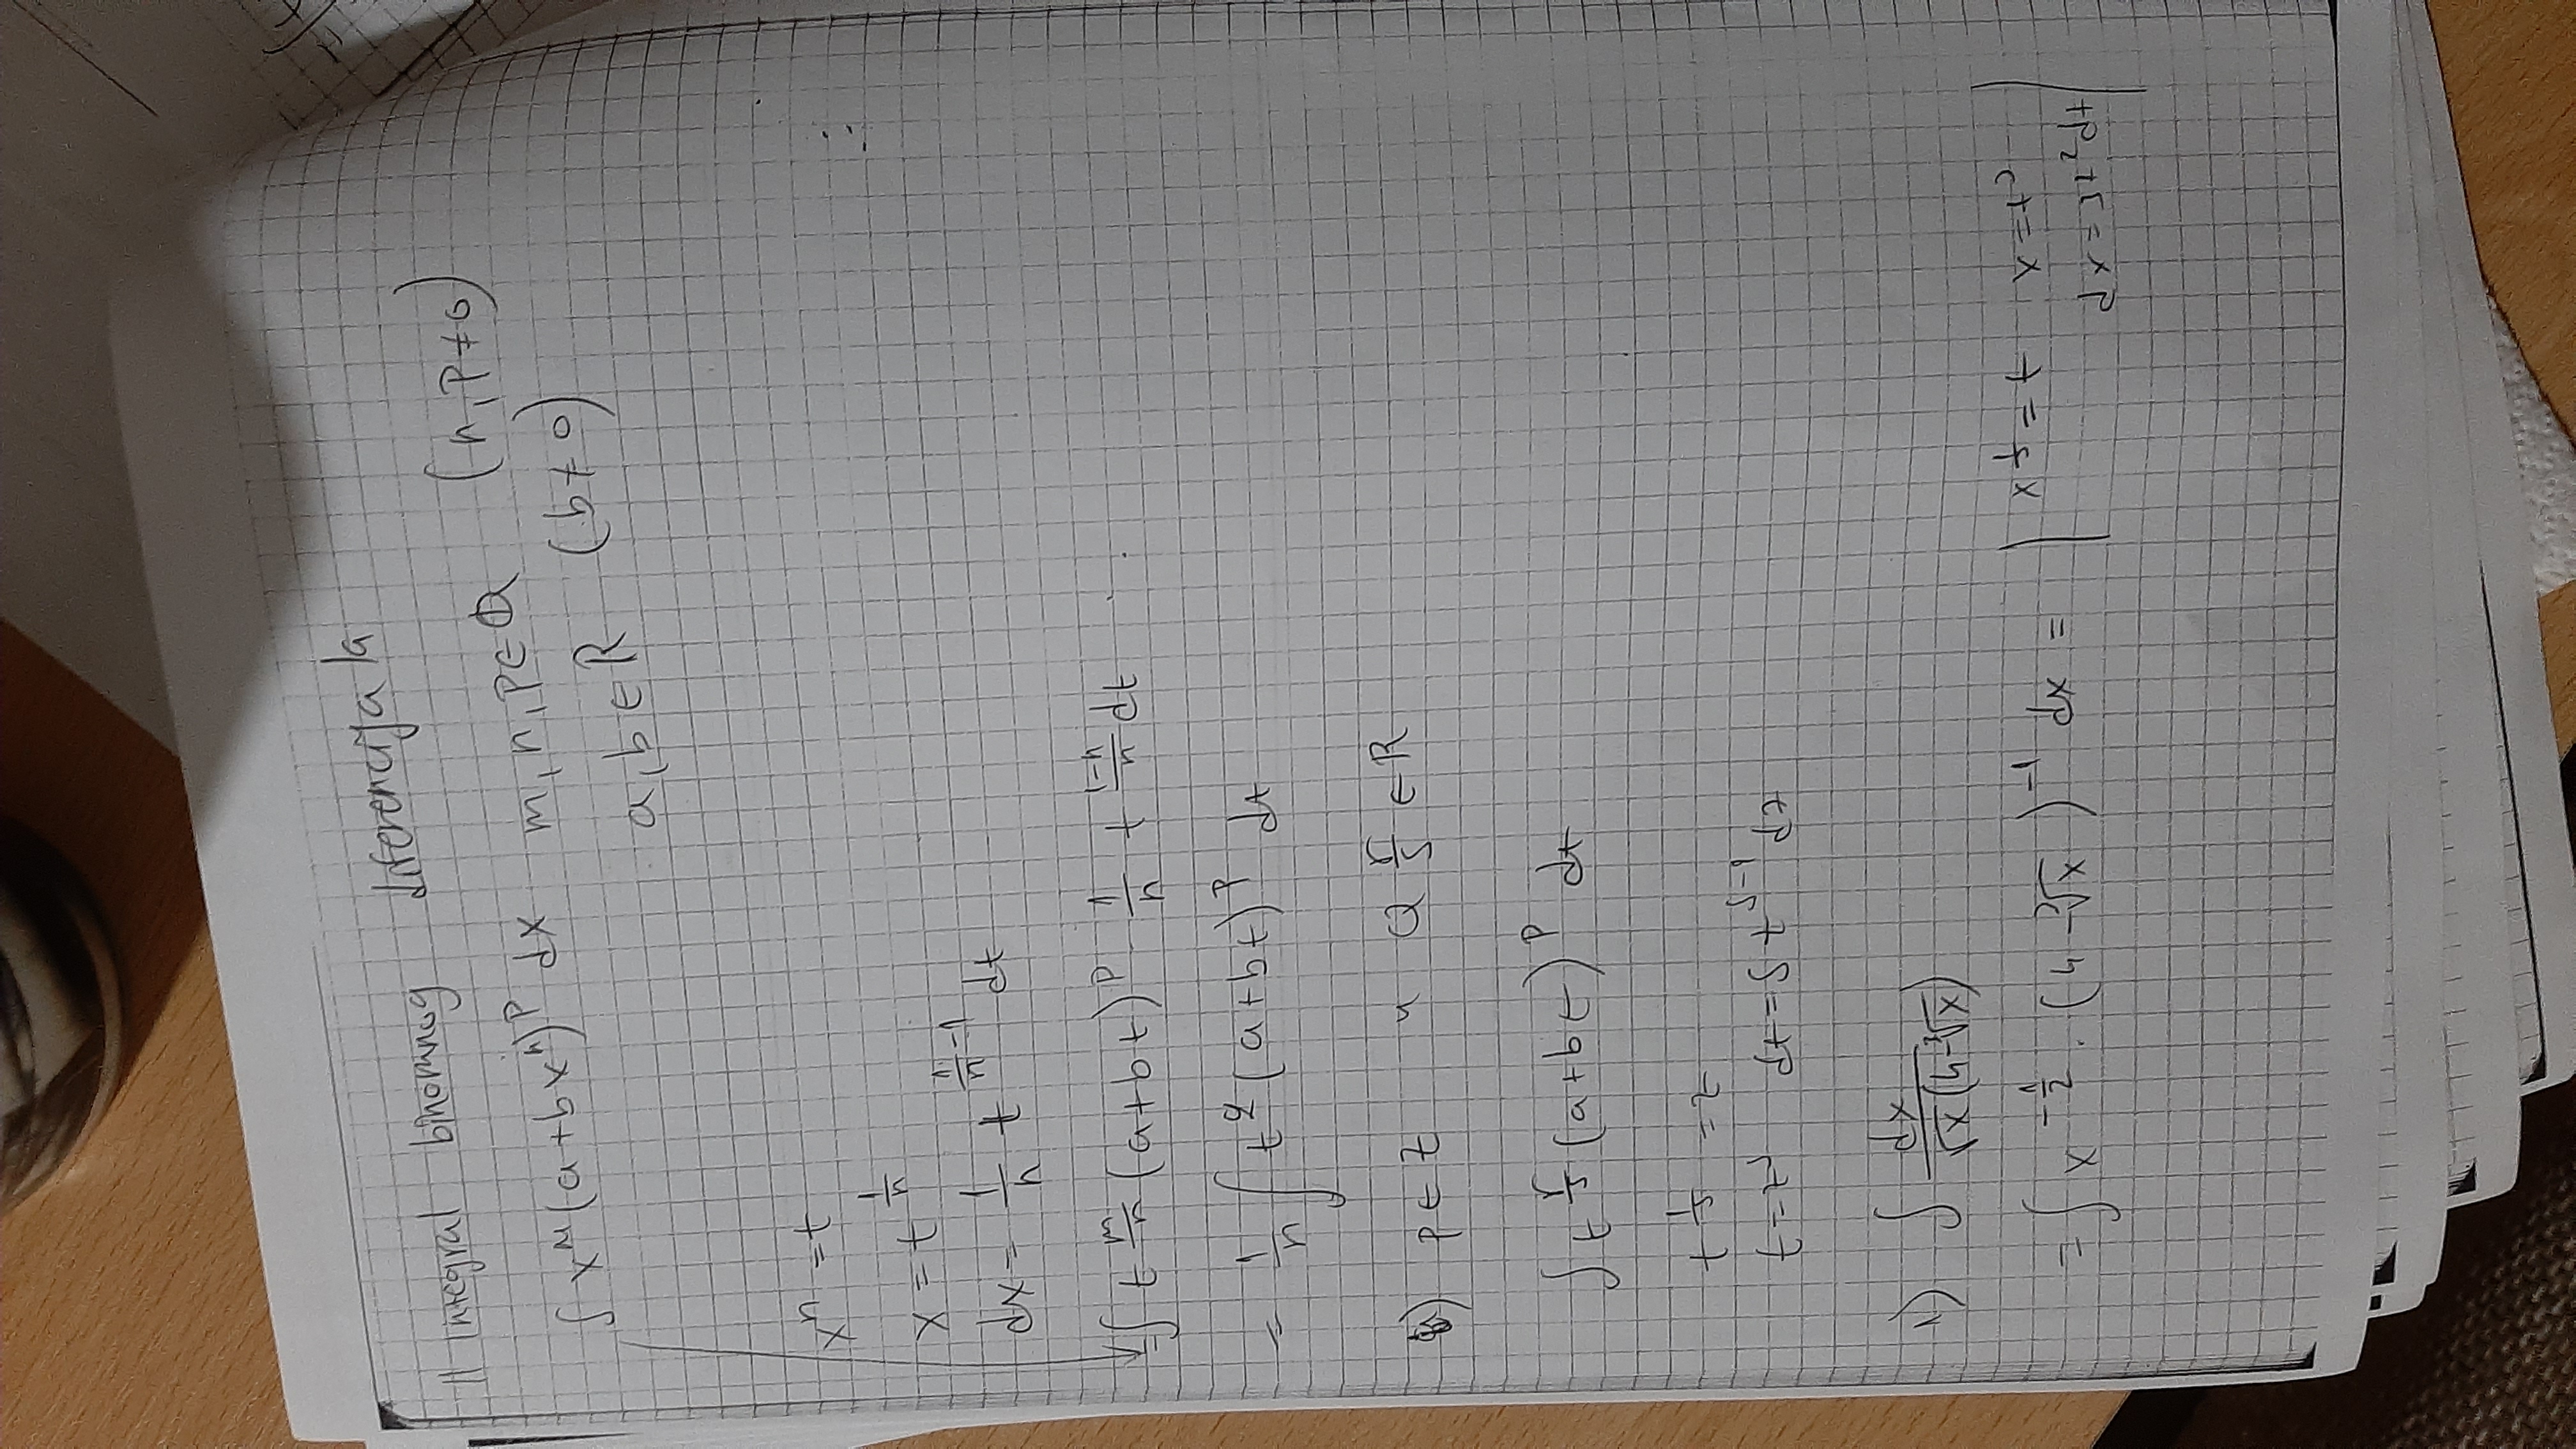 11 Integral binomnog diferencijala
∫ x^m (a+bx^n)^p dx m, n, p ∈ Q (n, p ≠ 0)
a, b ∈ R (b ≠ 0)
x^n = t
x = t^(1/n)
dx = 1/n t^(1/n - 1) dt
= ∫ t^(m/n) (a+bt)^p 1/n t^((1-n)/n) dt
= 1/n ∫ t^q (a+bt)^p dt
p ∈ Z u Q r/s ∈ R
∫ t^(r/s) (a+bt)^p dt
t^(1/s) = z
t = z^s dt = s t^(s-1) dz
1) ∫ dx / (√x (4-∛x))
= ∫ x^(-1/2) · (4-∛x)^(-1) dx = | x^(1/3) = t x = t^3
dx = 3t^2 dt |